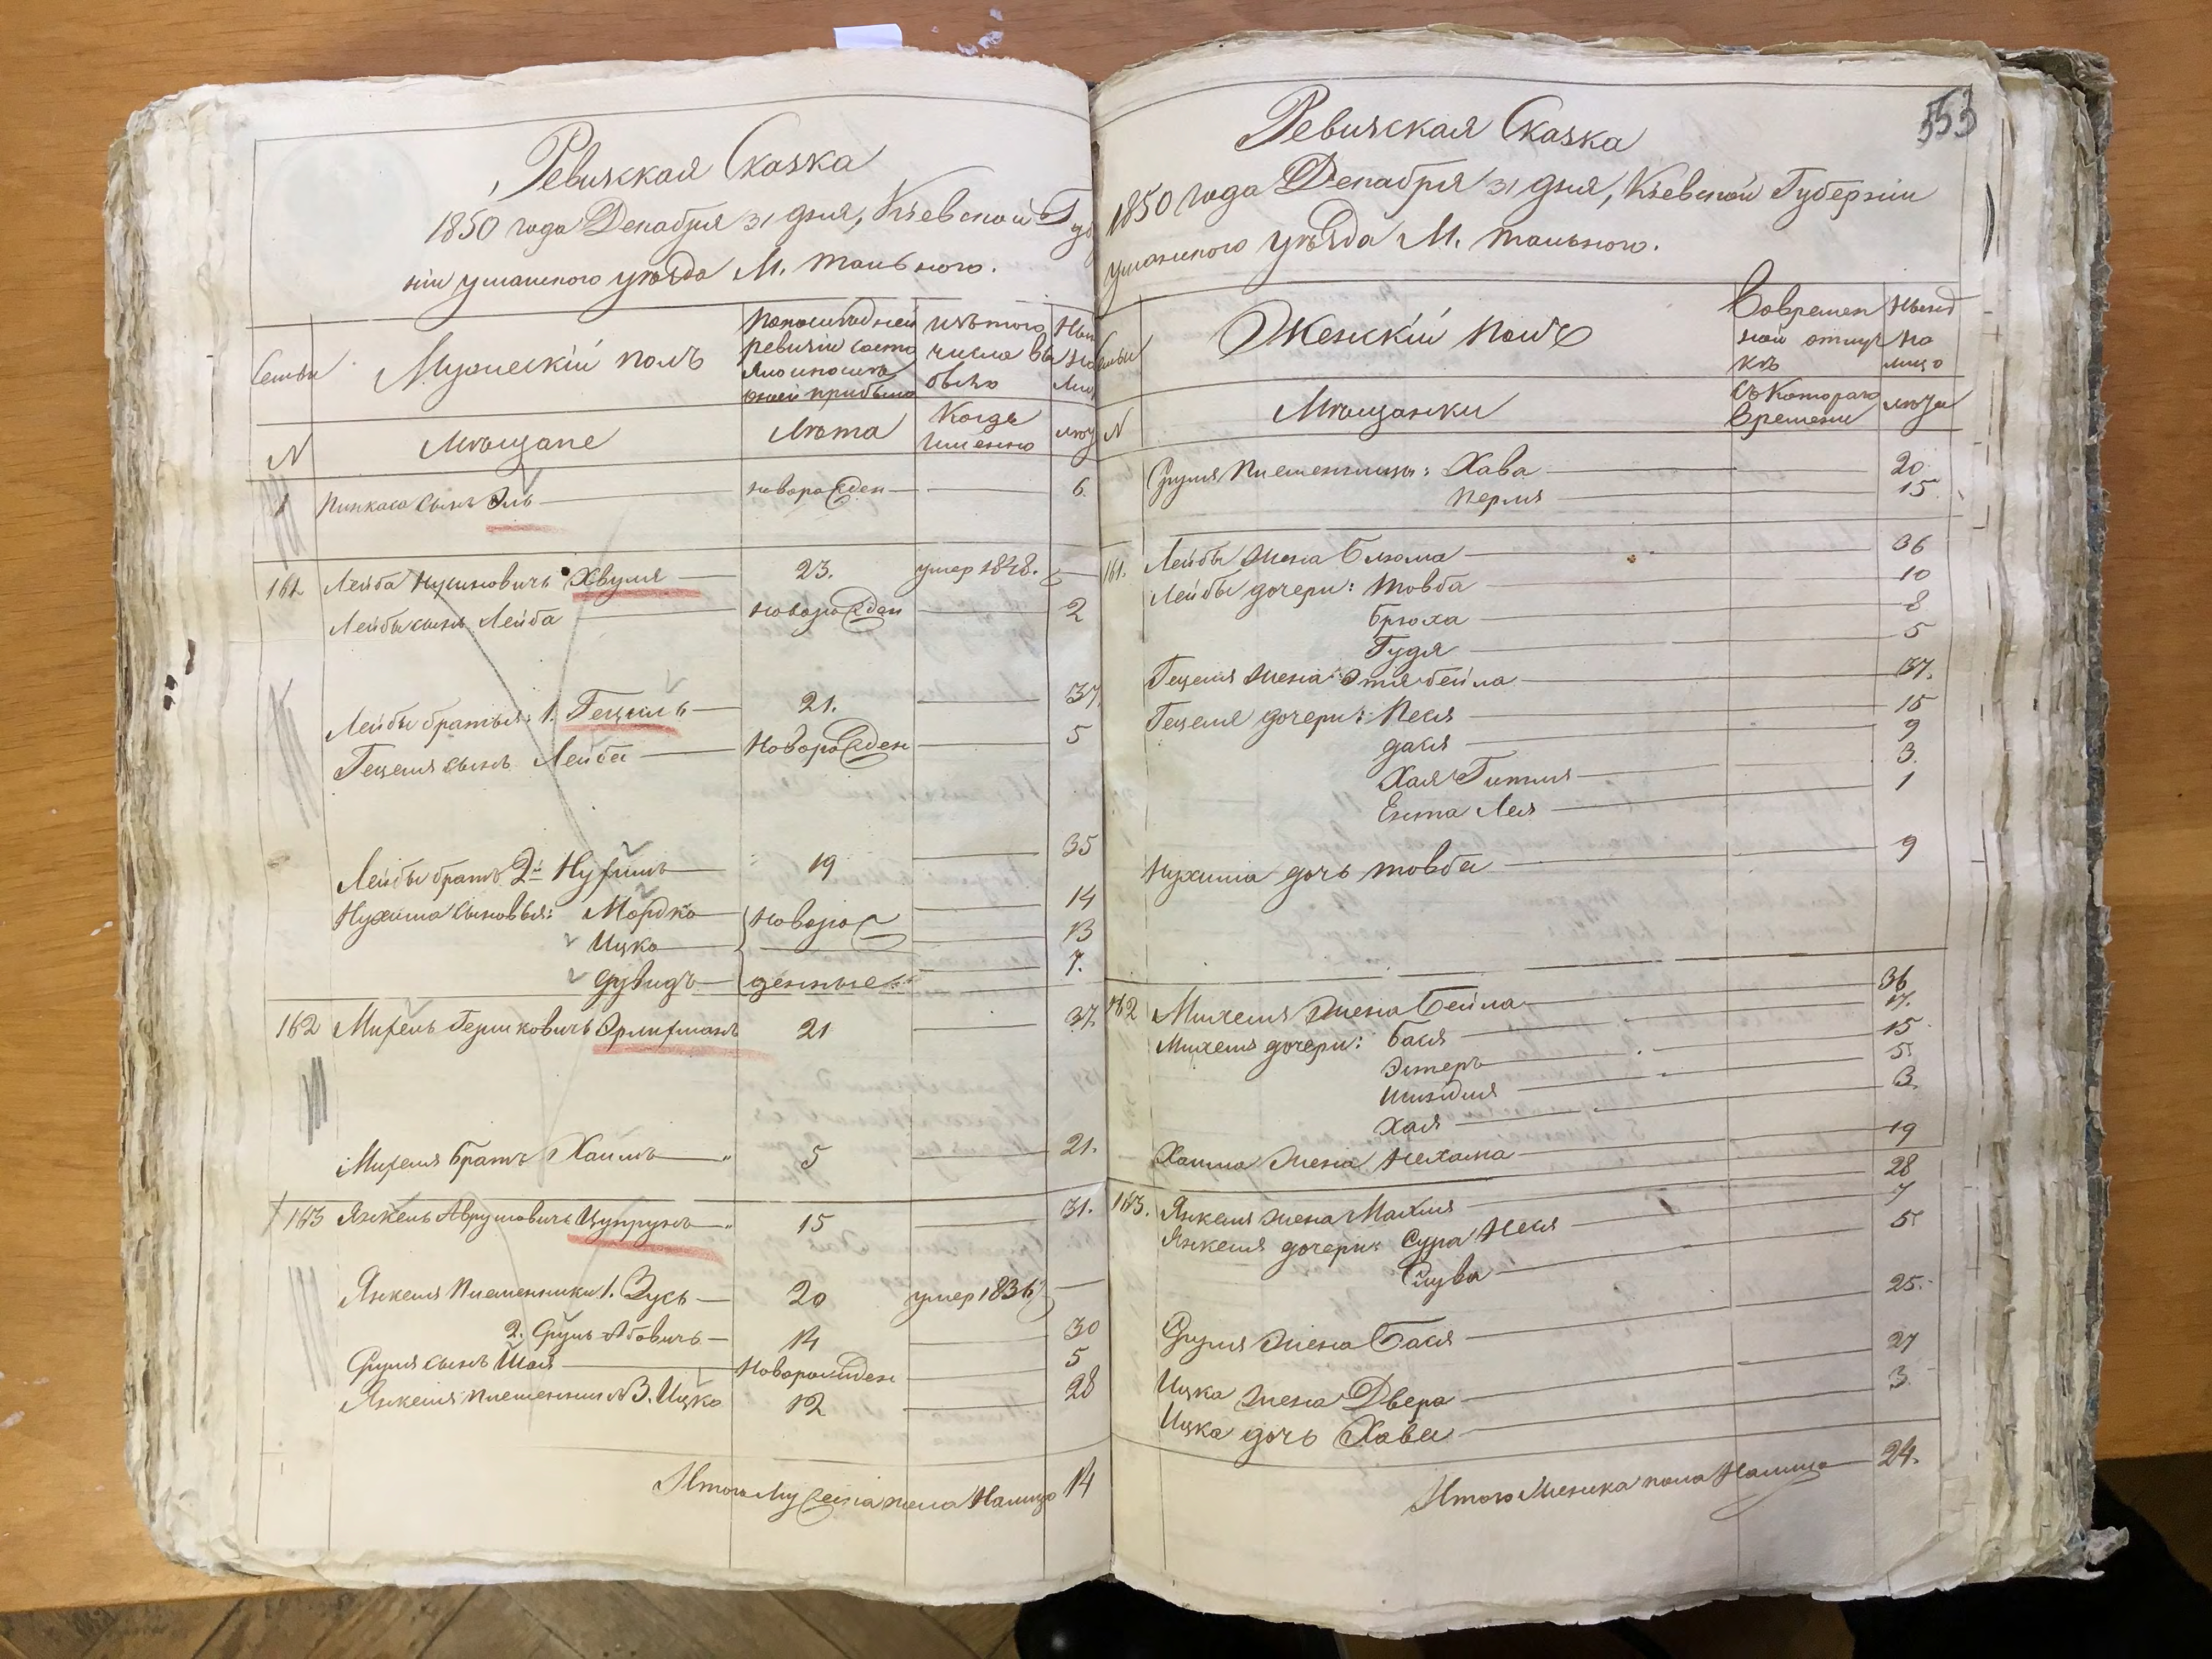 Ревизская Сказка
1850 года Декабря 31 дня, Кіевской Губ
ніи уманского уѣзда М. Тального.
Семьи
Мужескій полъ
По последней ревизіи состо
яло и после оной прибыло
изъ того числа вы
было
Ны
№
Мѣщане
Лѣта
Когда именно
лѣта
Пинкаса сынъ Эль новорожден 6.
161 Лейба Нухимовичъ Хвуля 23. умер 1848.
Лейбы сынъ Лейба новорожден 2
Лейбы братья: 1. Гецель 21. 37.
Гецеля сынъ Лейба новорожден 5
Лейбы братъ 2й Нухимъ 19 35
Нухима сыновья: Мордко новорож 14
Ицко 13
Дувидъ денные 7.
162 Михель Гершковичъ Эрлихманъ 21 37.
Михеля братъ Хаимъ 5 21.
163 Янкель Аврумовичъ Цупрунъ 15 31.
Янкеля племенники 1. Зусь 20 умер 1836
2. Сруль Абовичъ 14 30
Сруля сынъ Шая новорожден 5
Янкеля племенник 3. Ицко 12 28
Итого Мужеска пола налицо 14
553
Ревизская Сказка
1850 года Декабря 31 дня, Кіевской Губерніи
уманского уѣзда М. Тального.
Семьи
Женскій полъ
Во времен
ной отлуч
кѣ
Ныне
на
лицо
№
Мѣщанки
Съ котораго
времени
лѣта
Сруля племенницы: Хава 20.
Перля 15.
161. Лейбы жена Блюма 36
Лейбы дочери: Товба 10
Брюха 8
Гудя 5
Гецеля жена Этябейла 37.
Гецеля дочери: Песя 15
Дася 9
Хая Гитля 3.
Ента Лея 1
Нухима дочь Товба 9
162 Михеля жена Бейла 36
Михеля дочери: Бася 17.
Эстеръ 15
Шейдля 5.
Хая 3.
Хаима жена Нехама 19
163. Янкеля жена Махля 28
Янкеля дочери: Сура Неся 7
Слува 5
Сруля жена Бася 25.
Ицка жена Двера 27
Ицка дочь Хава 3
Итого Женска пола налицо 24.